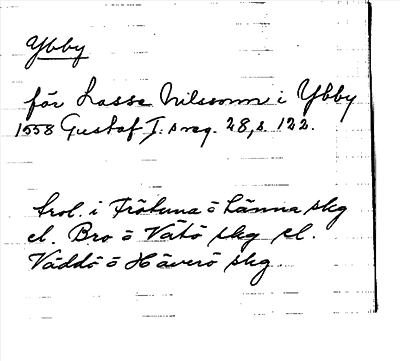 Ybby
för Lasse Nilsson i Ybby
1558 Gustaf I:s reg. 28, s. 122.
trol. i Frötuna o Länna skg
el. Bro o Vätö skg el.
Väddö o Häverö skg.